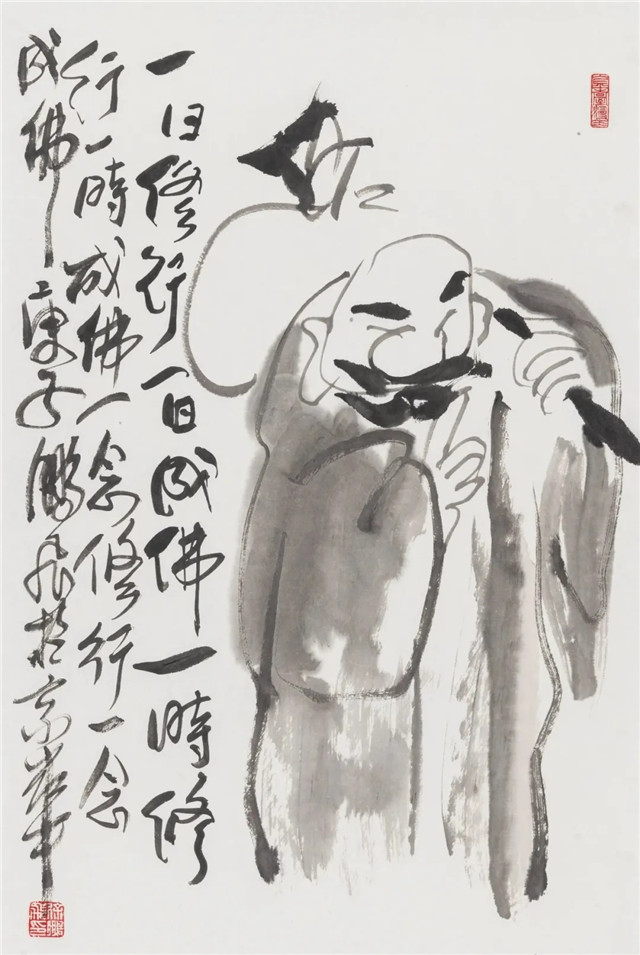 一日修行一日成佛一時修
行一時成佛一念修行一念
成佛 庚子鵬飛於京華